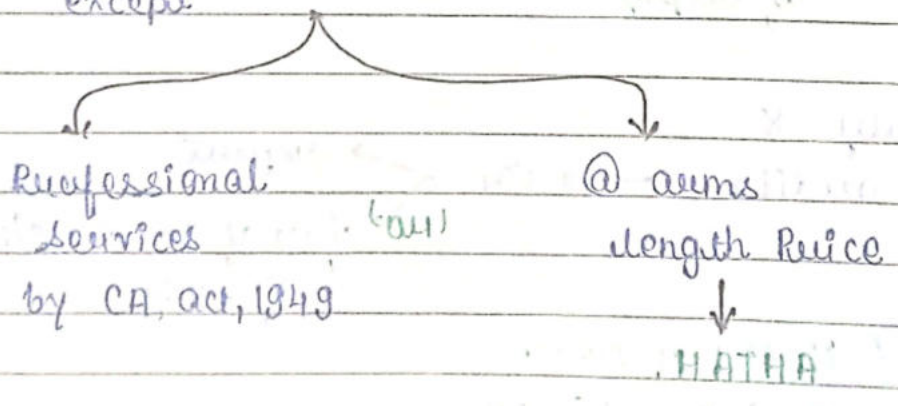 except
Professional
services
by CA, act, 1949
@ arms
length Price
HATHA